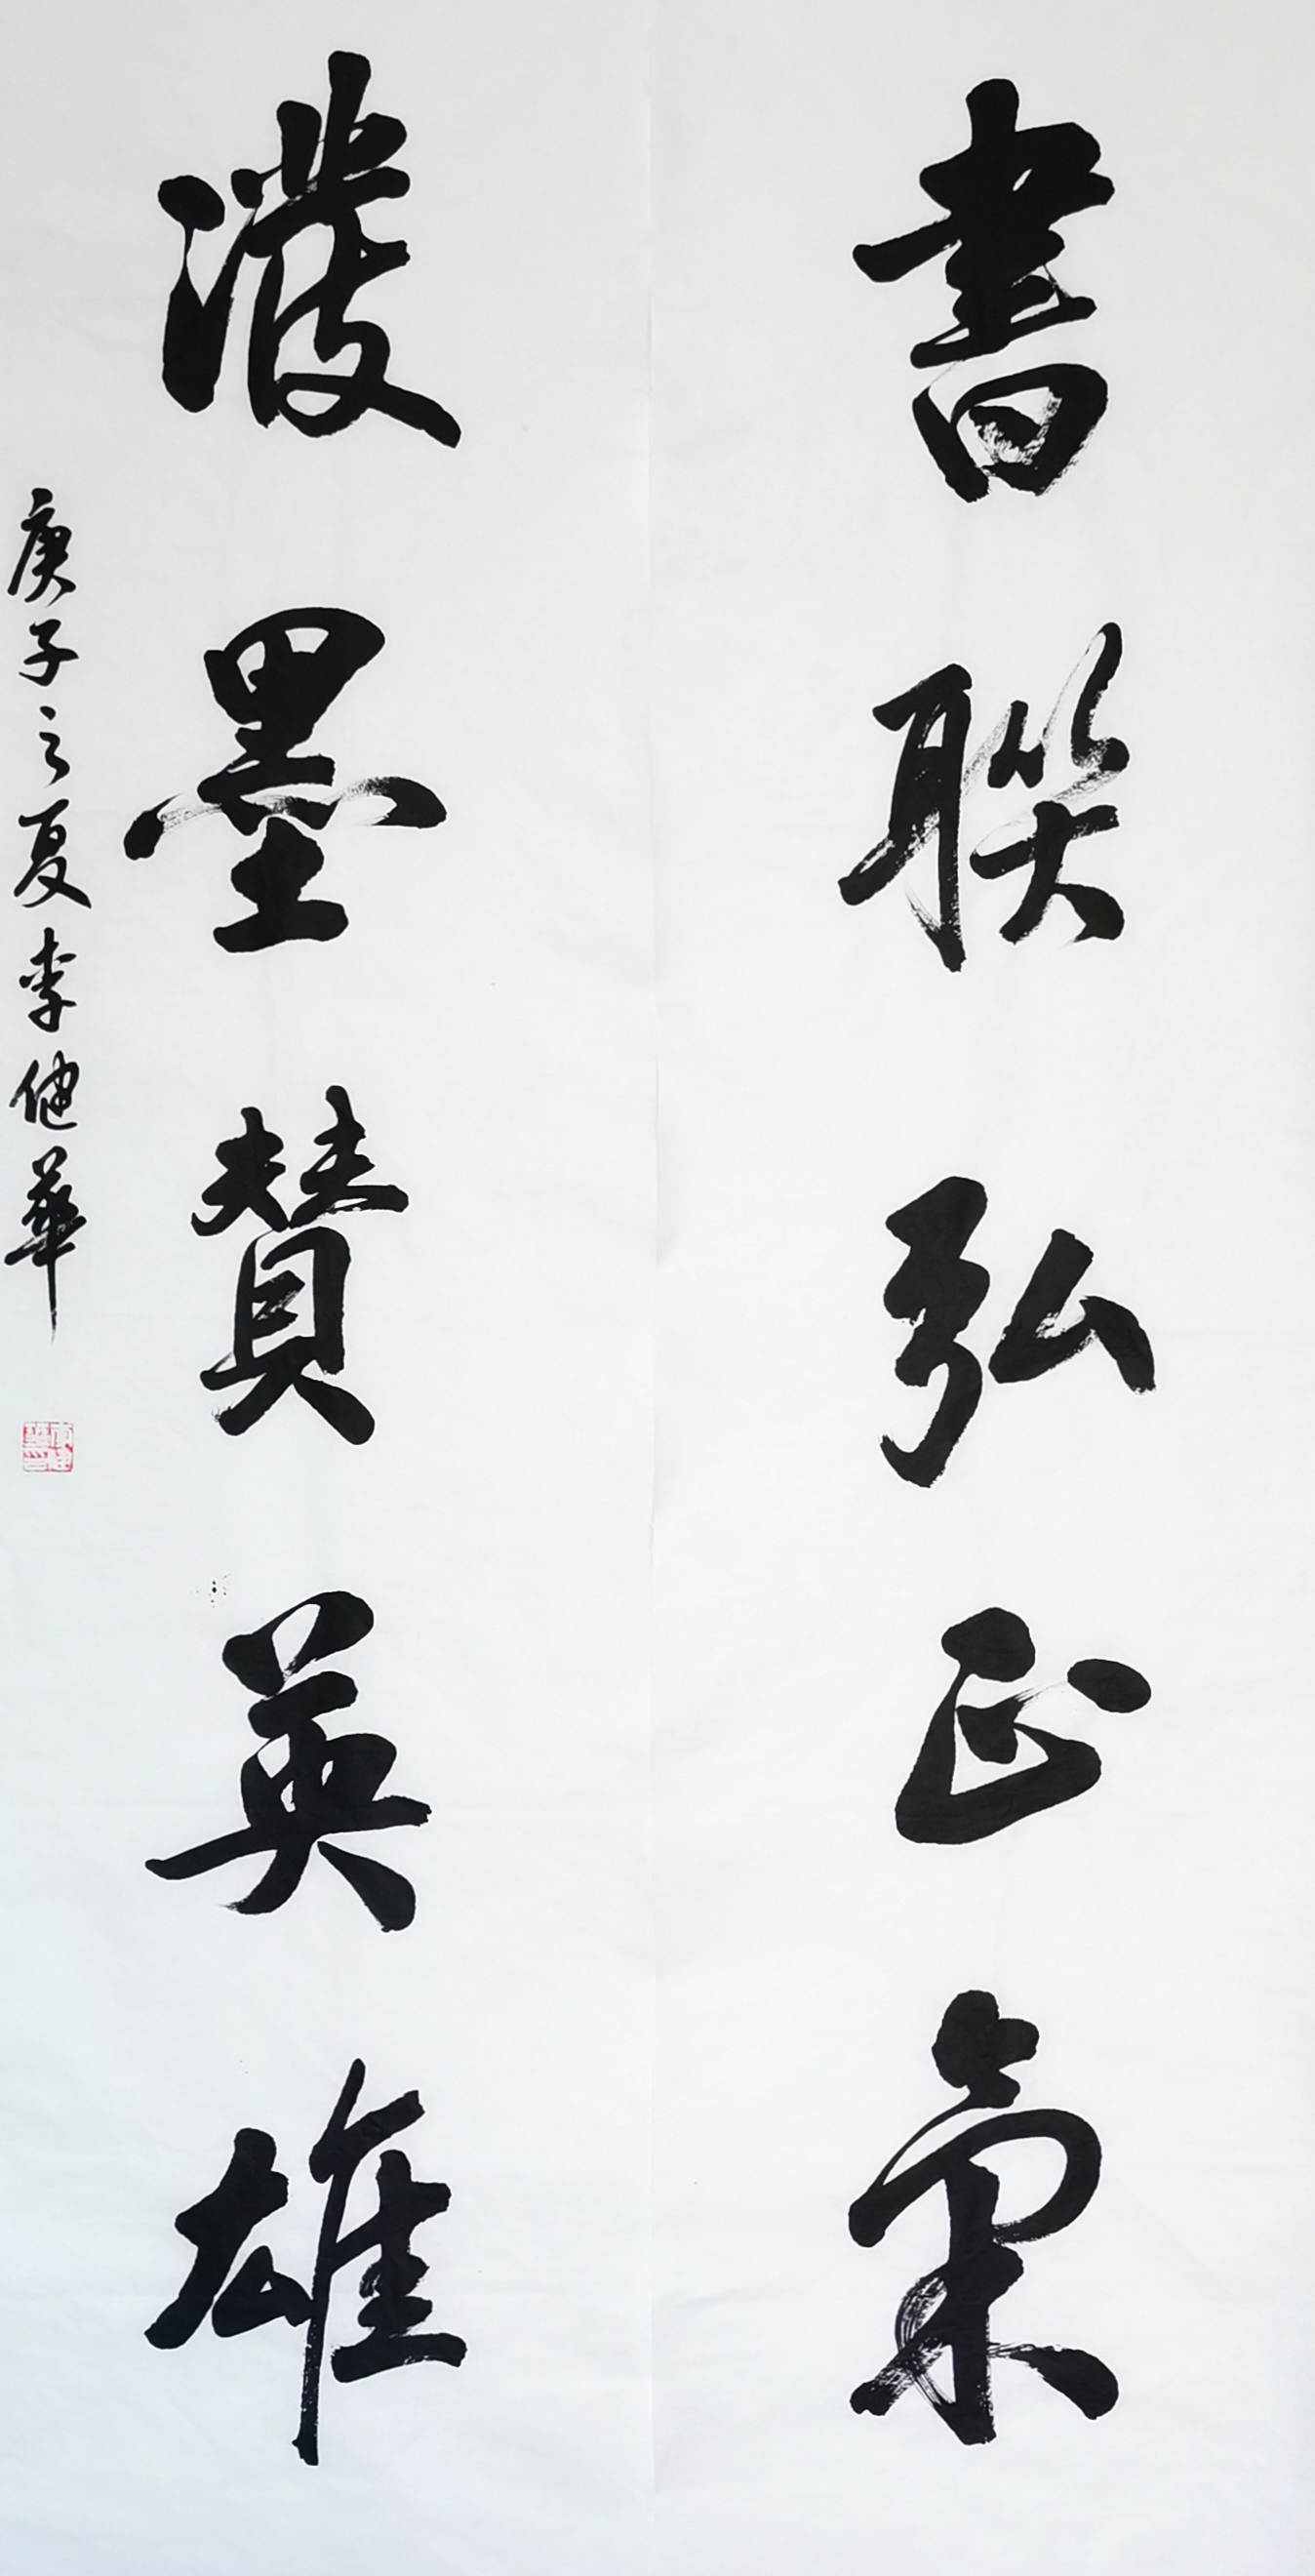 書聯弘正氣
潑墨贊英雄
庚子之夏李健華